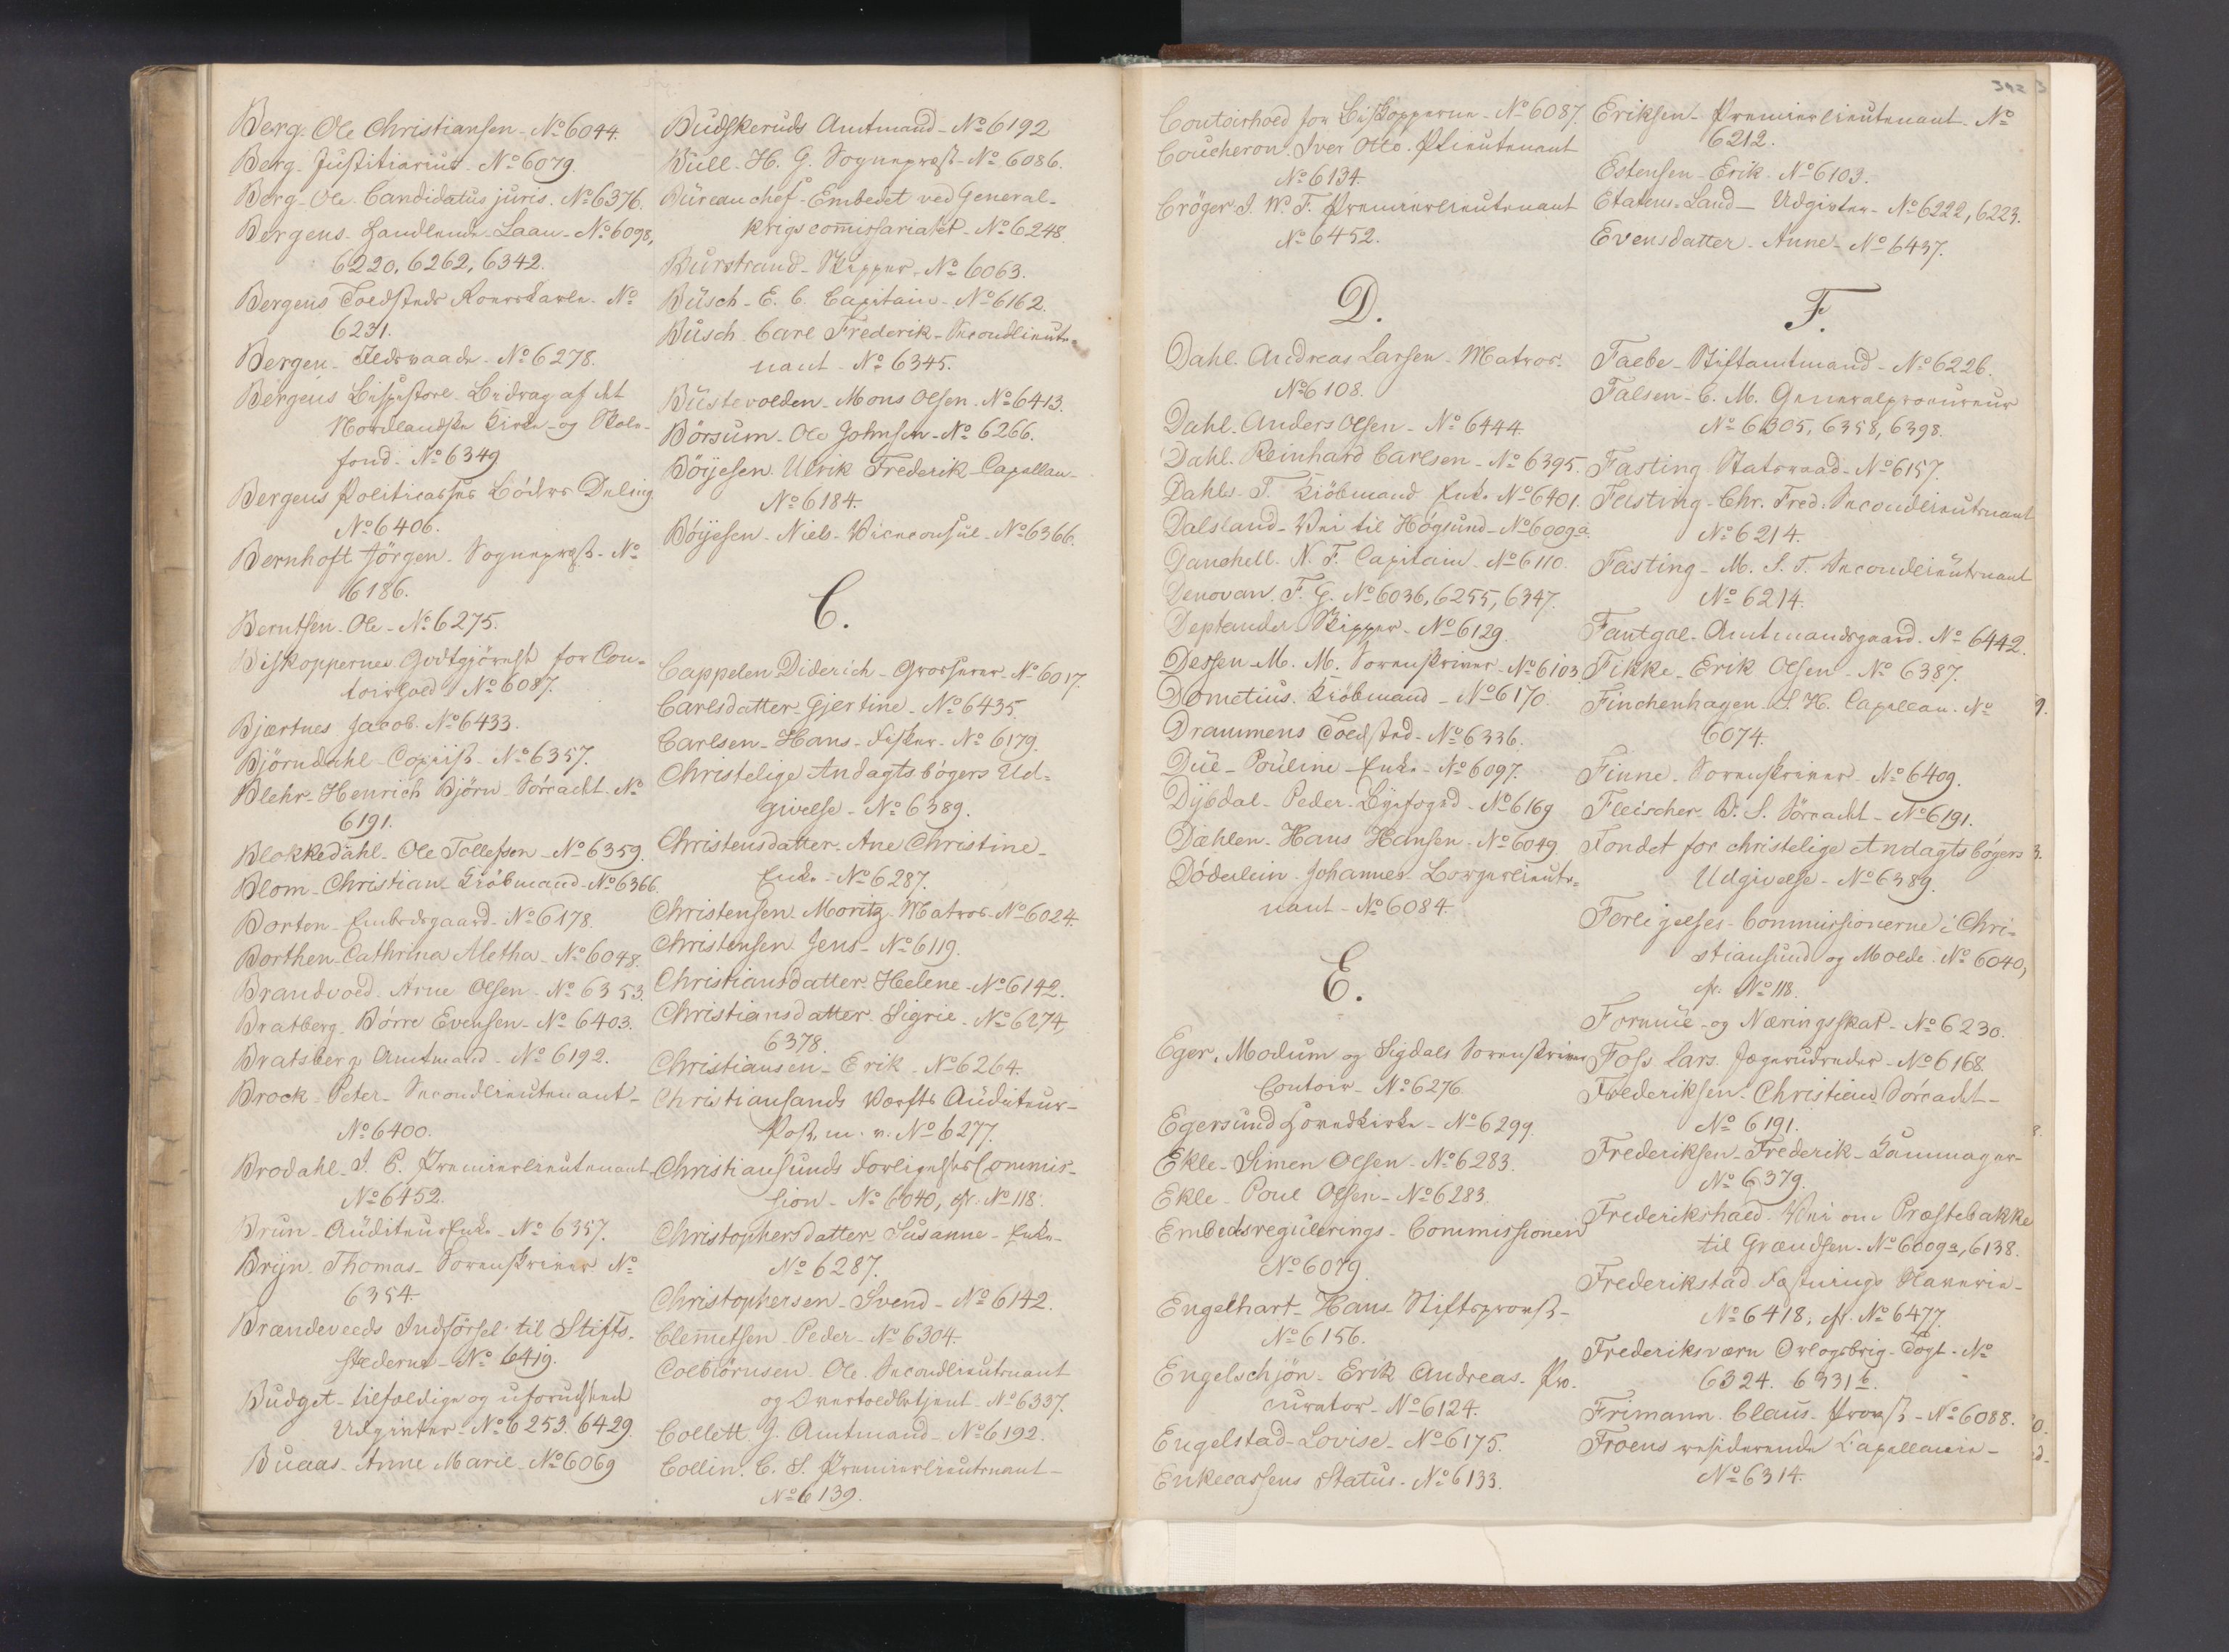 Berg. Ole Christiansen - No 6044.
Berg. Justitiarius. No 6079.
Berg - Ole. Candidatus juris. No 6376.
Bergens - Handlende - Laan - No 6098,
6220, 6262, 6342.
Bergens Toldsteds Roerskarle. No
6231.
Bergen - Ildsvaade - No 6278.
Bergens Bispestoel - Bidrag af det
Nordlandske Kirke- og Skole-
fond - No 6349
Bergens Politicasses Bøders Deling
No 6406.
Bernhoft Jörgen - Sognepræst - No
6186.
Berntsen - Ole - No 6275.
Biskoppernes Godtgjørelse for Con-
toirhold - No 6087.
Bjærtnes Jacob. No 6433.
Björndahl - Copiist - No 6357.
Blehr - Henrich Bjørn - Søecadet. No
6191.
Blokkedahl - Ole Tollefsen - No 6359.
Blom - Christian - Kiöbmand - No 6366.
Borten - Embedsgaard - No 6178.
Borthen - Cathrina Aletha - No 6048.
Brandvold. Arne Olsen - No 6353.
Bratberg. Børre Evensen - No 6403.
Bratsberg Amtmand - No 6192.
Brock - Peter - Secondlieutenant -
No 6400.
Brodahl - I. P. Premierlieutenant
No 6452.
Brun - Auditeurenke - No 6357.
Bryn - Thomas - Sorenskriver - No
6354.
Brændeveeds Indførsel til Stifts-
stæderne - No 6419.
Budget - tilfældige og uforudseete
Udgivter - No 6253. 6429.
Buaas - Anne Marie - No 6069
Budskeruds Amtmand - No 6192
Bull - H. G. Sognepræst - No 6086.
Büreauchef - Embedet ved General-
krigscommissariatet - No 6248.
Burstrand - Skipper - No 6063.
Büsch - E. C. Capitain - No 6162.
Büsch - Carl Frederik - Secondlieute-
nant - No 6345.
Büstevolden - Mons Olsen - No 6413.
Börsum - Ole Johnsen - No 6266.
Böyesen. Ulrik Frederik - Capellan -
No 6184.
Böyesen - Niels - Viceconsul - No 6366.
C.
Cappelen Diderich - Grosserer - No 6017.
Carlsdatter - Gjertine - No 6435.
Carlsen - Hans - Fisker - No 6179.
Christelige Andagtsbøgers Ud-
givelse - No 6389.
Christensdatter - Ane Christine -
Enke - No 6287.
Christensen. Moritz - Matros - No 6024.
Christensen Jens - No 6119.
Christiansdatter Helene - No 6142.
Christiansdatter - Sigrie - No 6274,
6378.
Christiansen - Erik - No 6264.
Christiansands Værfts Auditeur -
Post, m. v. No 6277.
Christiansunds Forligelses Commis-
sion - No 6040, cfr. No 118.
Christophersdatter - Susanne - Enke -
No 6287.
Christophersen - Svend - No 6142.
Clemetsen - Peder - No 6304.
Colbiörnsen - Ole. Secondlieutenant
og Overtoldbetjent - No 6337.
Collett J. Amtmand - No 6192.
Collin. C. S. Premierlieutenant -
No 6139.
392
Contoirhold for Biskopperne - No 6087.
Coucheron. Iver Otto. Plieutenant
No 6134.
Cröger I. W. F. Premierlieutenant
No 6452.
D.
Dahl. Andreas Larsen - Matros.
No 6108.
Dahl. Anders Olsen - No 6444.
Dahl. Reinhard Carlsen - No 6395.
Dahls - T. Kiöbmand Enke No 6401.
Dalsland - Vei til Høgsund - No 6009a.
Danchell. N. F. Capitain - No 6110.
Denovan. F. G. No 6036, 6255, 6347.
Deptander Skipper - No 6129.
Dessen M. M. Sorenskriver - No 6103
Dometius. Kiöbmand - No 6170.
Drammens Toldsted - No 6336.
Düe - Pouline - Enke - No 6097.
Dybdal - Peder - Byefoged - No 6169
Dæhlen. Hans Hansen - No 6049
Döderlein - Johannes - Borgerlieute-
nant - No 6084.
E.
Eger, Modum og Sigdals Sorenskriver
Contoir - No 6276.
Egersund Hovedkirke - No 6299.
Ekle - Simen Olsen - No 6283.
Ekle - Poul Olsen - No 6283.
Embedsregulerings - Commissionen
No 6079.
Engelhart - Hans Stiftsprovst -
No 6156.
Engelschjön - Erik Andreas - Pro-
curator - No 6124.
Engelstad - Lovise - No 6175.
Enkecassens Status - No 6133.
Eriksen - Premierlieutenant - No
6212.
Estensen - Erik - No 6103.
Etatens - Land - Udgivter - No 6222, 6223.
Evensdatter - Anne - No 6437.
F.
Falbe - Stiftamtmand - No 6226.
Falsen - C. M. Generalprocureur
No 6305, 6358, 6398.
Fasting Statsraad - No 6157.
Fasting - Chr. Fred. Secondlieutenant
No 6214.
Fasting - M. S. T. Secondlieutenant
No 6214.
Fautgal - Amtmandsgaard - No 6442.
Fikke - Erik Olsen - No 6387.
Finchenhagen - S. H. Capellan. No
6074.
Finne - Sorenskriver - No 6409.
Fleischer. B. S. Sörcadet - No 6191.
Fondet for christelige Andagtsbøgers
Udgivelse - No 6389.
Forligelses - Commissionerne i Chri-
stiansund og Molde. No 6040,
cfr. No 118.
Formue - og Næringsskat - No 6230.
Foss Lars. Jægerudreder - No 6168.
Frederiksen - Christian Söecadet -
No 6191.
Frederiksen - Frederik - Bundmager -
No 6379.
Frederikshald - Vei om Præstebakke
til Grændsen - No 6009a, 6138.
Frederikstad Fæstnings Slaverie -
No 6418, cfr. No 6477.
Frederiksværn Orlogsbrig - Togt - No
6324. 6331b.
Frimann. Claus - Provst - No 6088.
Froens residerende Capellanie -
No 6314.